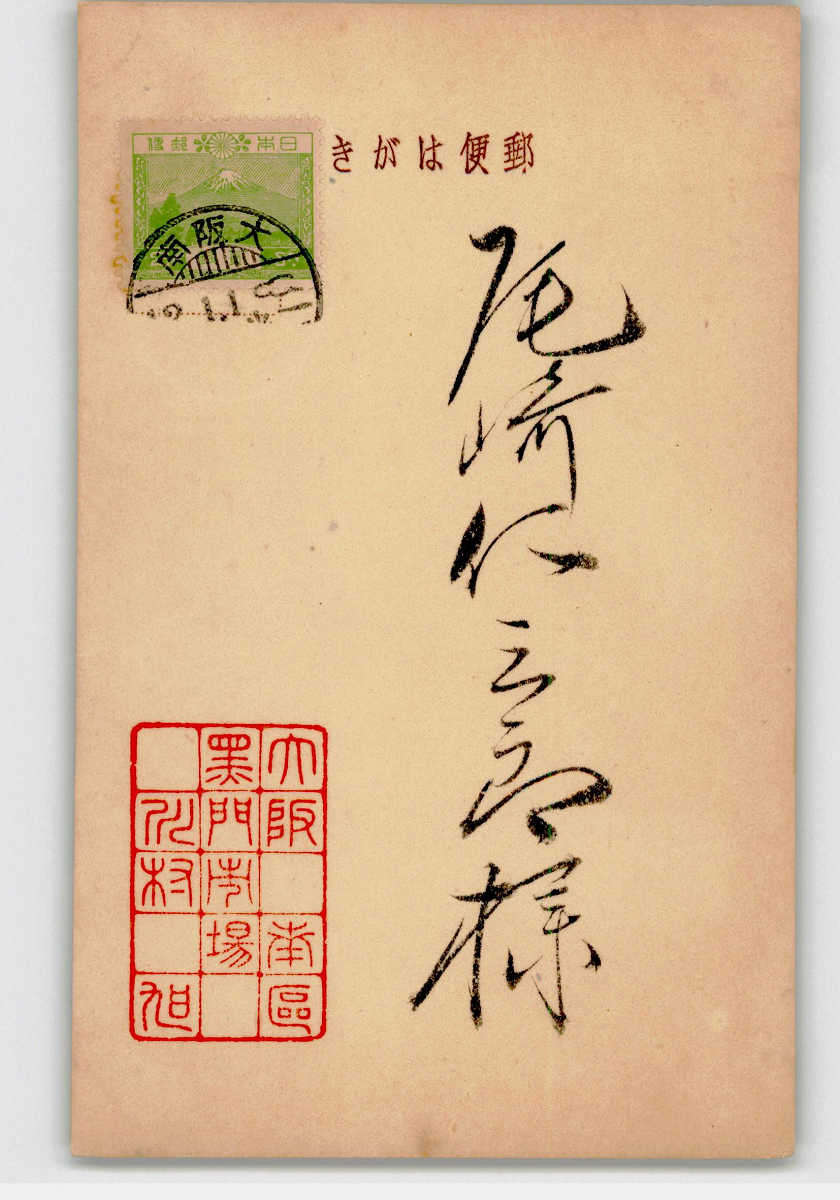 郵便はがき
日本郵便
大阪南
尾崎仁三郎様
大阪南區
黒門市場
村旭